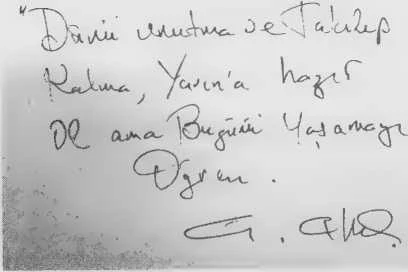 "Dünü unutma ve Takılıp
Kalma, Yarın'a hazır
Ol ama Bugünü Yaşamayı
Öğren.